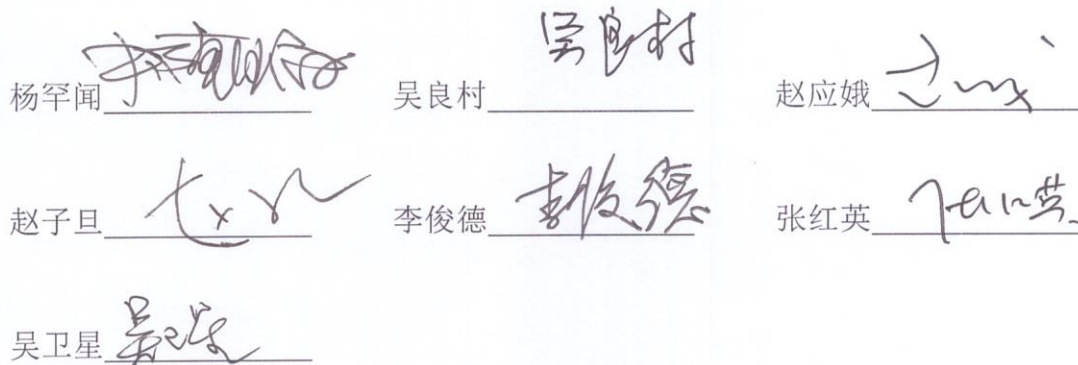 杨罕闻 吴良村 吴良村 赵应娥
赵子旦 李俊德 李俊德 张红英 张红英
吴卫星 吴卫星